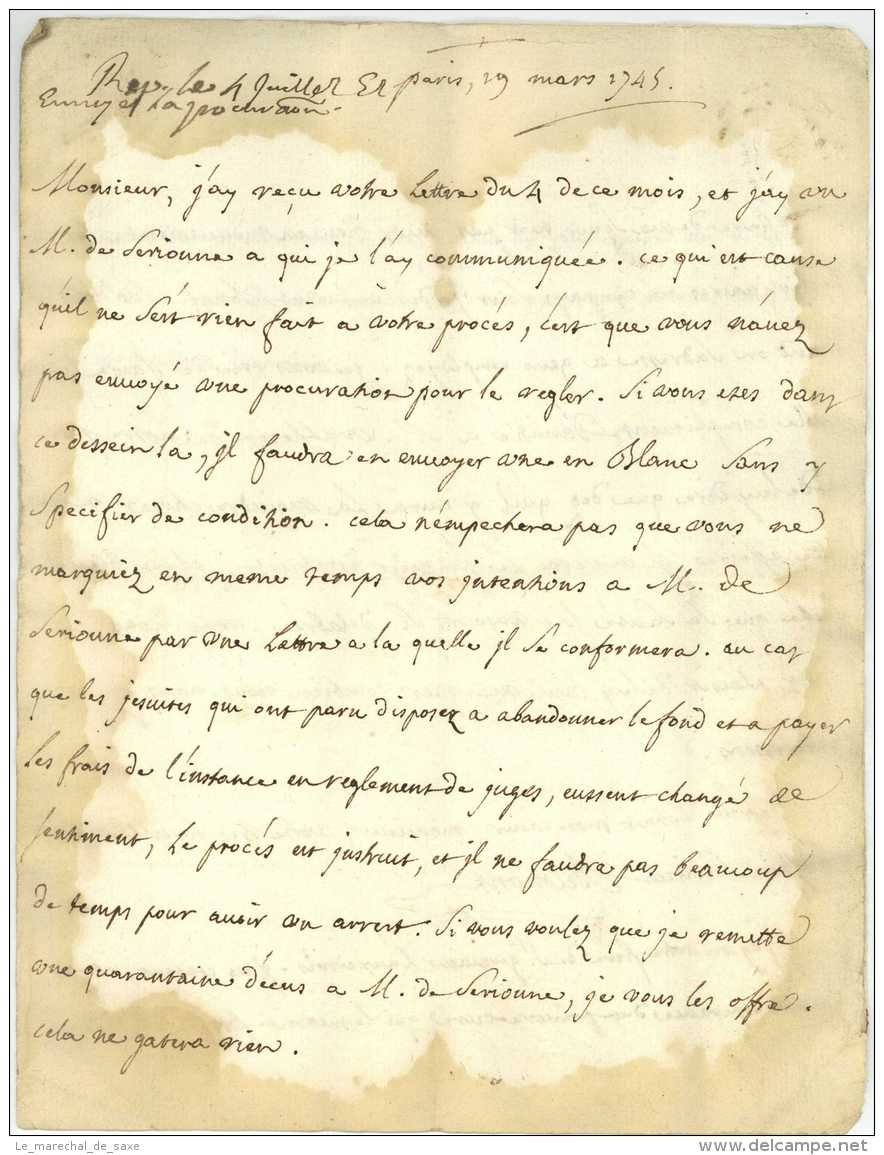 Rep. le 4 Juillet Et paris, 19 mars 1745.
Envoyé la procuraõn.
Monsieur, j'ay reçu votre Lettre du 4 de ce mois, et j'ay vu
M. de Serionne a qui je l'ay communiquée. ce qui est cause
qu'il ne s'est rien fait à votre procés, c'est que vous n'avez
pas envoyé une procuration pour le regler. Si vous etes dans
ce dessein la, jl faudra en envoyer une en Blanc sans y
Specifier de condition. cela n'empechera pas que vous ne
marquiez en meme temps vos jntentions a M. de
Serionne par une Lettre a la quelle jl se conformera. au cas
que les jesuites qui ont paru disposez a abandonner le fond et a payer
Les frais de l'instance en reglement de juges, eussent changé de
sentiment, Le procés est jnstruit, et jl ne faudra pas beaucoup
de temps pour avoir un arrest. Si vous voulez que je remette
une quarantaine d'écus a M. de Serionne, je vous les offre.
cela ne gatera rien.
Le_marechal_de_saxe
delcampe.net